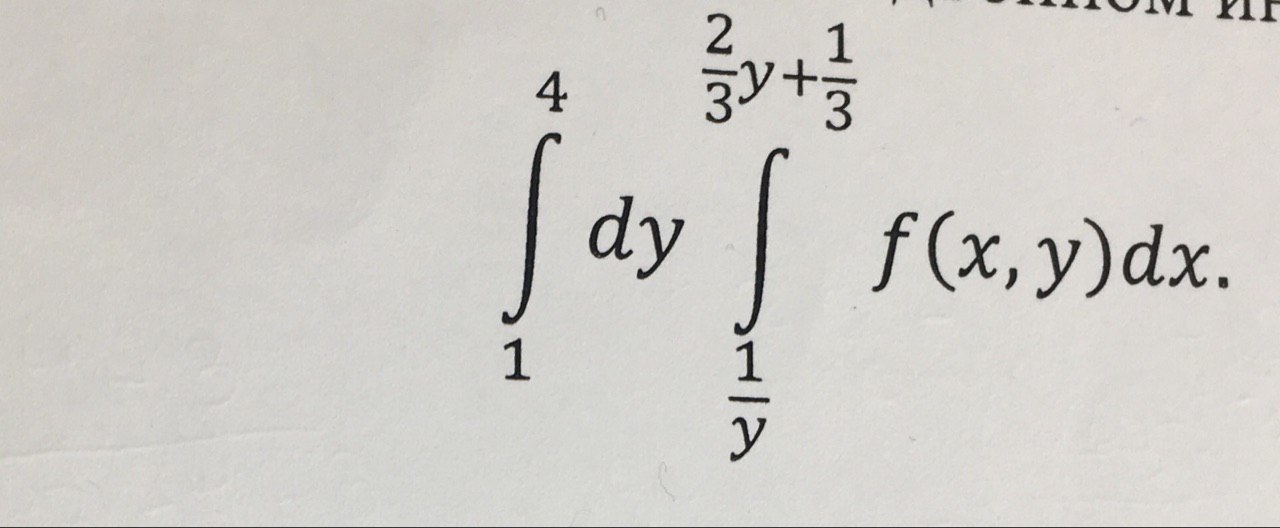 ∫₁⁴ dy ∫_{1/y}^{2/3 y+1/3} f(x, y)dx.